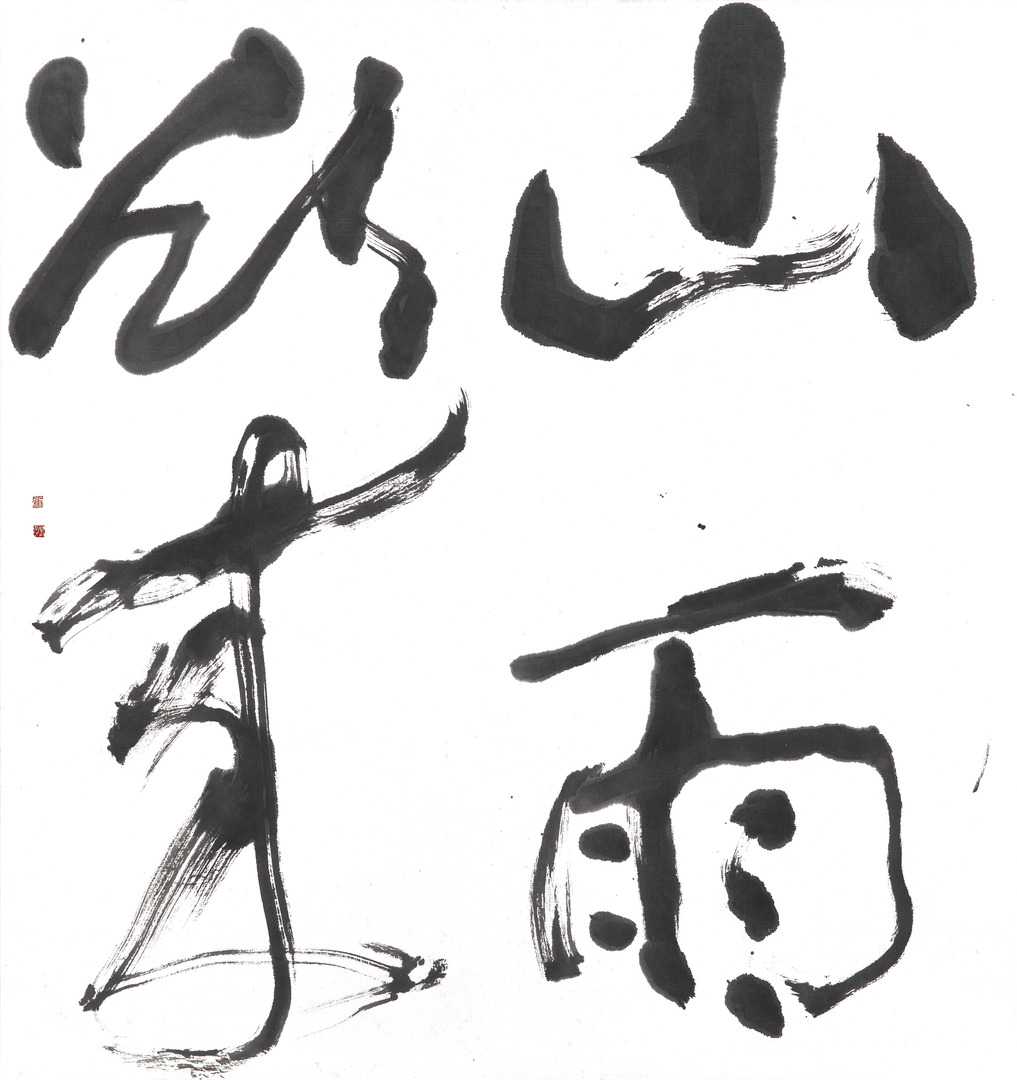 山雨
欲来